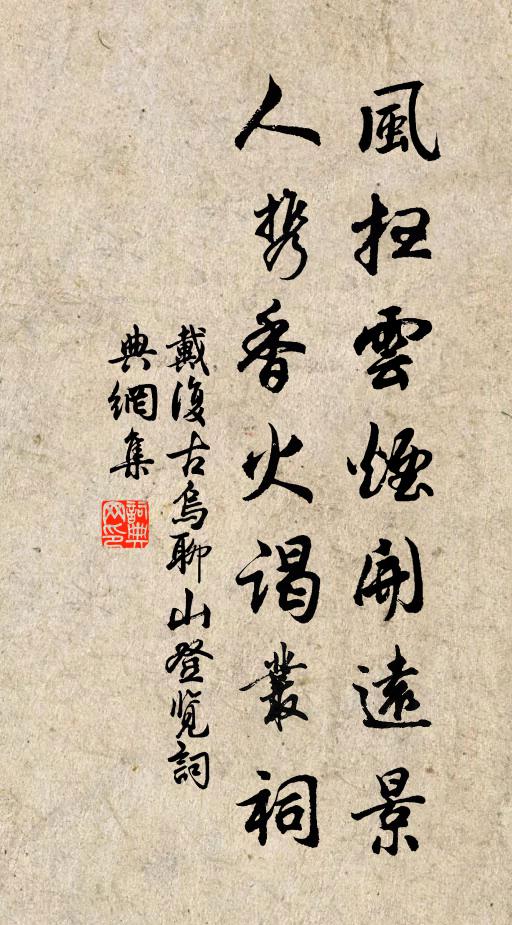 風扫雲煙開遠景
人携香火謁叢祠
戴復古烏聊山登覽詞
典網集
詞典網印